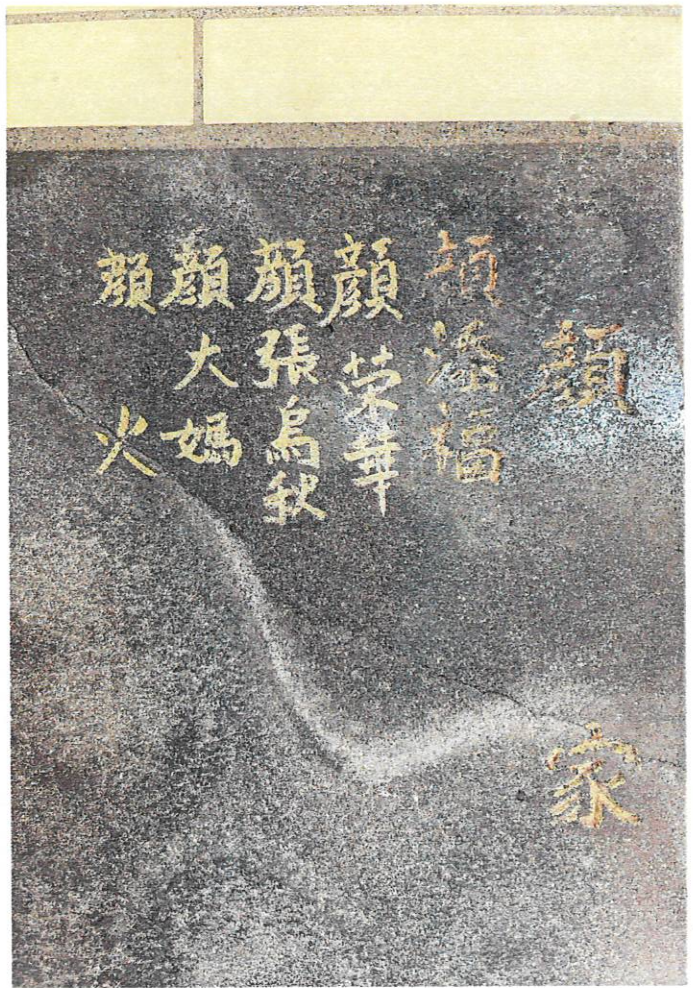 顏家
顏添福
顏榮華
顏張烏秋
顏大媽
顏火